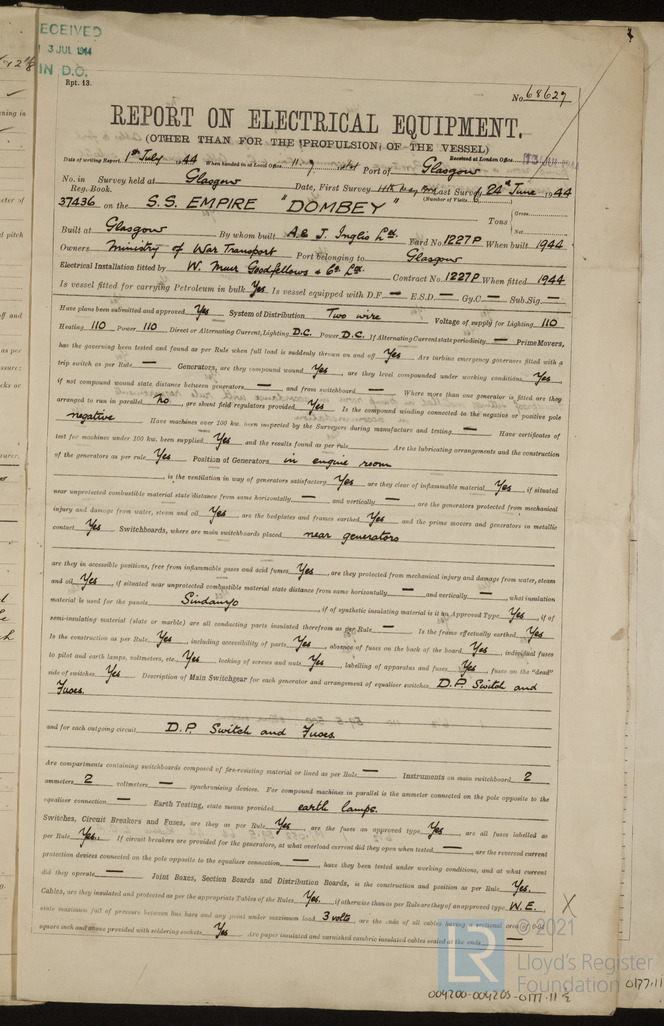 RECEIVED
3 JUL 1944
IN D.O.
Rpt. 13.
No. 68627
REPORT ON ELECTRICAL EQUIPMENT.
(OTHER THAN FOR THE PROPULSION OF THE VESSEL)
Date of writing Report 1st July 1944 When handed in at Local Office Port of Glasgow Received at London Office
No. in Reg. Book. Survey held at Glasgow Date, First Survey Last Survey 24th June 1944
(Number of Visits )
37436 on the S.S. EMPIRE "DOMBEY" Tons Gross Net
Built at Glasgow By whom built A. & J. Inglis Ltd. Yard No. 1227P When built 1944
Owners Ministry of War Transport Port belonging to Glasgow
Electrical Installation fitted by W. Muir Goodfellows & Co. Ltd. Contract No. 1227P When fitted 1944
Is vessel fitted for carrying Petroleum in bulk Yes Is vessel equipped with D.F. — E.S.D. — Gy.C. — Sub.Sig. —
Have plans been submitted and approved Yes System of Distribution Two wire Voltage of supply for Lighting 110
Heating 110 Power 110 Direct or Alternating Current, Lighting D.C. Power D.C. If Alternating Current state periodicity — Prime Movers,
has the governing been tested and found as per Rule when full load is suddenly thrown on and off Yes Are turbine emergency governors fitted with a
trip switch as per Rule — Generators, are they compound wound Yes, are they level compounded under working conditions Yes,
if not compound wound state distance between generators — and from switchboard — Where more than one generator is fitted are they
arranged to run in parallel No, are shunt field regulators provided Yes Is the compound winding connected to the negative or positive pole
negative Have machines over 100 kw. been inspected by the Surveyors during manufacture and testing — Have certificates of
test for machines under 100 kw. been supplied Yes and the results found as per rule Are the lubricating arrangements and the construction
of the generators as per rule Yes Position of Generators in engine room
, is the ventilation in way of generators satisfactory Yes are they clear of inflammable material Yes, if situated
near unprotected combustible material state distance from same horizontally — and vertically — are the generators protected from mechanical
injury and damage from water, steam and oil Yes are the bedplates and frames earthed Yes and the prime movers and generators in metallic
contact Yes Switchboards, where are main switchboards placed near generators
are they in accessible positions, free from inflammable gases and acid fumes Yes, are they protected from mechanical injury and damage from water, steam
and oil Yes, if situated near unprotected combustible material state distance from same horizontally — and vertically —, what insulation
material is used for the panels Sindanyo, if of synthetic insulating material is it an Approved Type Yes, if of
semi-insulating material (slate or marble) are all conducting parts insulated therefrom as per Rule — Is the frame effectually earthed Yes
Is the construction as per Rule Yes, including accessibility of parts Yes, absence of fuses on the back of the board Yes, individual fuses
to pilot and earth lamps, voltmeters, etc. Yes locking of screws and nuts Yes, labelling of apparatus and fuses Yes, fuses on the "dead"
side of switches Yes Description of Main Switchgear for each generator and arrangement of equaliser switches D.P. Switch and
Fuses.
and for each outgoing circuit D.P. Switch and Fuses.
Are compartments containing switchboards composed of fire-resisting material or lined as per Rule — Instruments on main switchboard 2
ammeters 2 voltmeters — synchronizing devices. For compound machines in parallel is the ammeter connected on the pole opposite to the
equaliser connection — Earth Testing, state means provided earth lamps.
Switches, Circuit Breakers and Fuses, are they as per Rule Yes, are the fuses an approved type Yes, are all fuses labelled as
per Rule Yes. If circuit breakers are provided for the generators, at what overload current did they open when tested —, are the reversed current
protection devices connected on the pole opposite to the equaliser connection —, have they been tested under working conditions, and at what current
did they operate — Joint Boxes, Section Boards and Distribution Boards, is the construction and position as per Rule Yes.
Cables, are they insulated and protected as per the appropriate Tables of the Rules Yes. if otherwise than as per Rule are they of an approved type W.E. X
state maximum fall of pressure between bus bars and any point under maximum load 3 volts are the ends of all cables having a sectional area of
square inch and above provided with soldering sockets Yes Are paper insulated and varnished cambric insulated cables sealed at the ends —
LR
© 2021
Lloyd's Register
Foundation
004200-004205-0177.11
0177.11